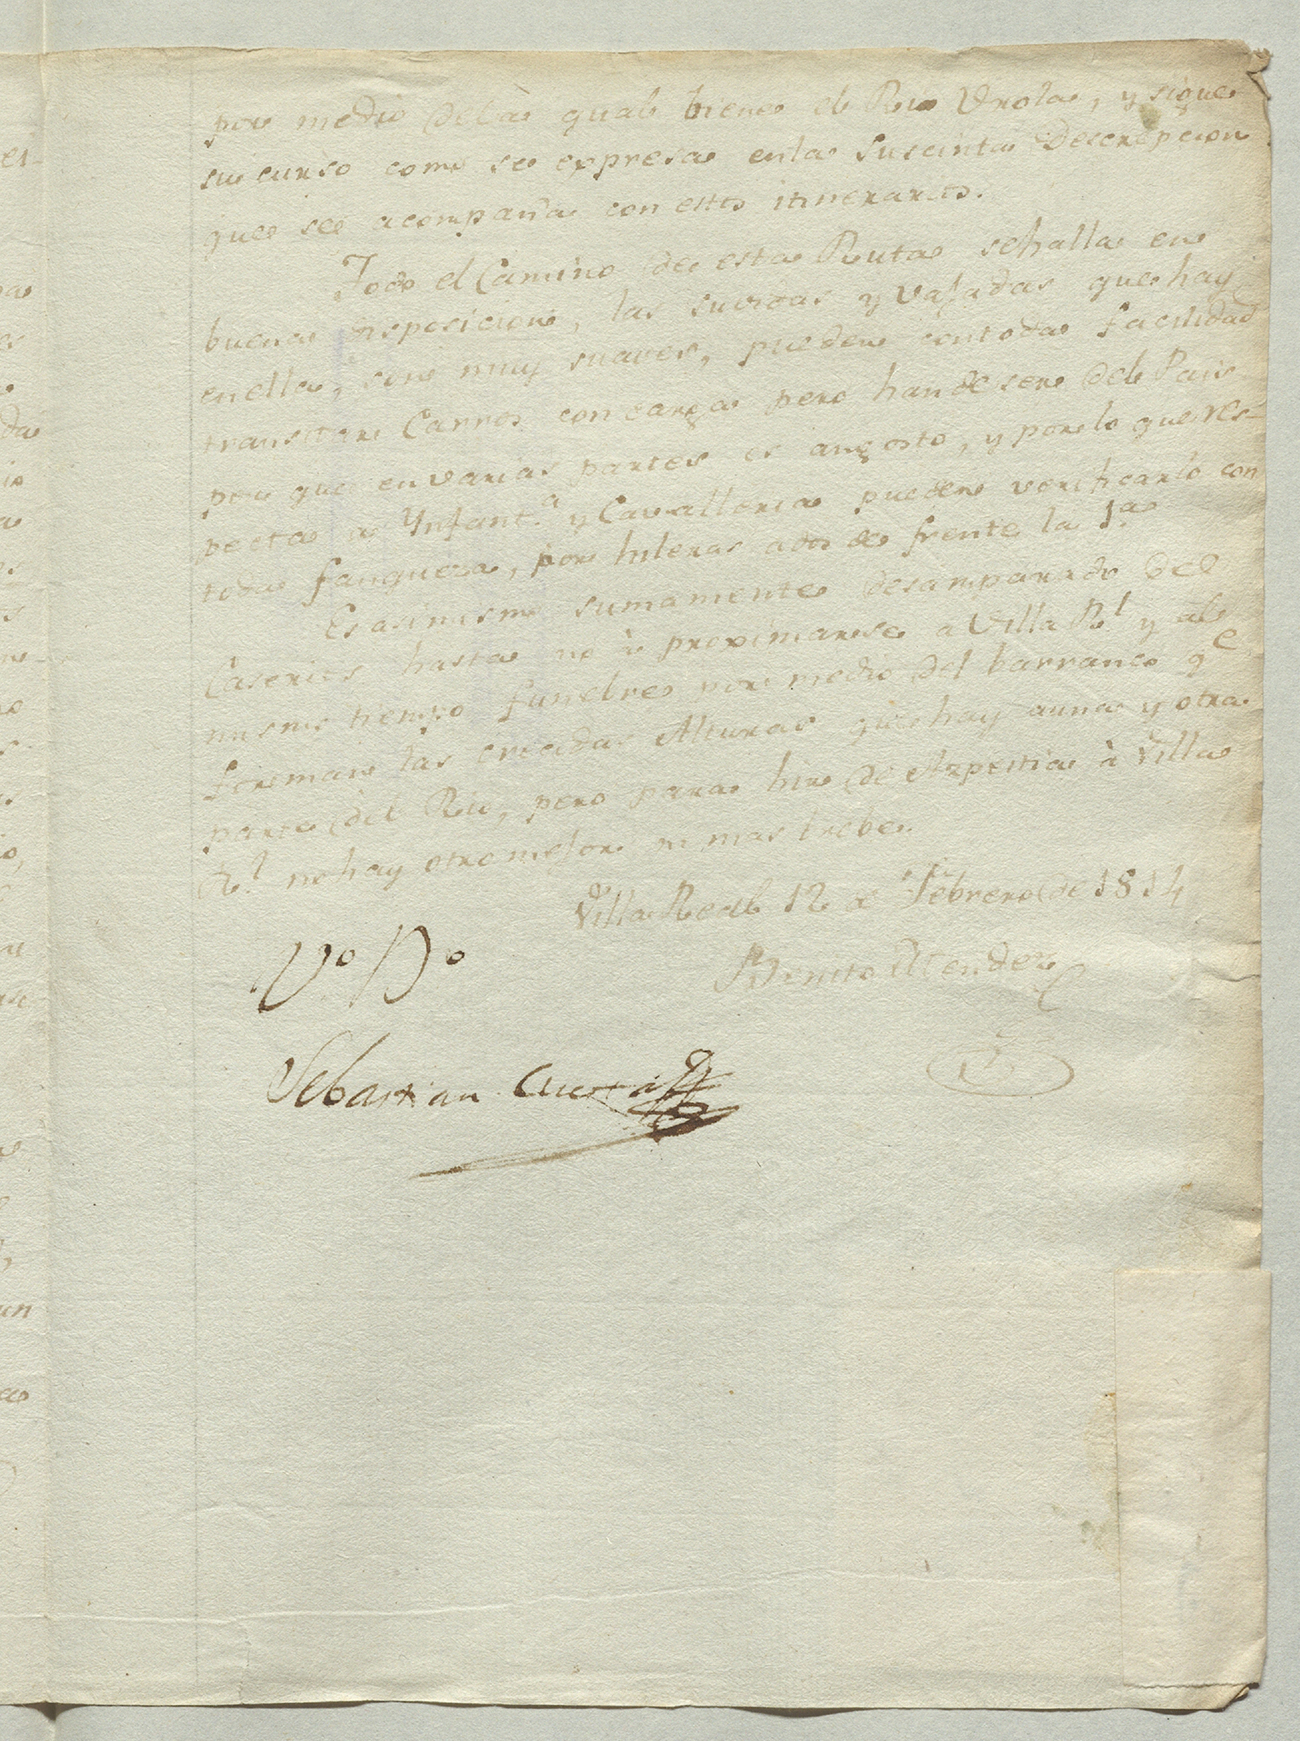 por medio de la qual biene el Rio Vrola, y sigue
su curso como se expresa en la suscinta Descrepcion
que se acompaña con estos itinerarios.
Todo el Camino de esta Ruta se halla en
buena disposicion, las suvidas y vajadas que hay
en ella, son muy suaves, pueden con toda facilidad
transitar Carros con carga pero han de ser del Pais
por que en varias partes es angosto, y por lo que res-
pecta a Ynfant.ª y Cavalleria pueden verificarlo con
toda franqueza, por hileras a dos de frente la 1.ª
Es asimismo sumamente desamparado del
Caserios hasta no à proximarse a Villa Rl y al
mismo tiempo funebre por medio del barranco qe
forman las crecidas Alturas que hay a una y otra
parte del Rio, pero para hir de Azpeitia à Villa
Rl. no hay otro mejor ni mas brebe.
Villa Real 12 de Febrero de 1814
Vº Bº
Benito Mendez
Sebastian Cuesta